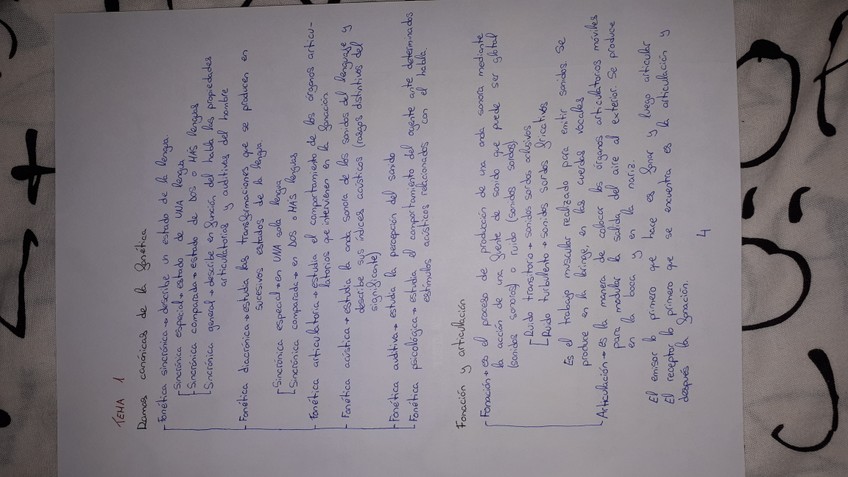 TEMA 1
Ramas canónicas de la fonética
- Fonética sincrónica → describe un estado de la lengua.
[Sincrónica especial → estado de UNA lengua
[Sincrónica comparada → estado de DOS o MÁS lenguas
[Sincrónica general → describe en función del habla las propiedades
articulatorias y auditivas del hombre
- Fonética diacrónica → estudia las transformaciones que se producen en
sucesivos estados de la lengua
[Sincrónica especial → en UNA sola lengua
[Sincrónica comparada → en DOS o MÁS lenguas
- Fonética articulatoria → estudia el comportamiento de los órganos articu-
latorios que intervienen en la fonación
- Fonética acústica → estudia la onda sonora de los sonidos del lenguaje y
describe sus índices acústicos (rasgos distintivos del
significante)
- Fonética auditiva → estudia la percepción del sonido
- Fonética psicológica → estudia el comportamiento del oyente ante determinados
estímulos acústicos relacionados con el habla.
Fonación y articulación
- Fonación → es el proceso de producción de una onda sonora mediante
la acción de una fuente de sonido que puede ser glotal
(sonidos sonoros) o ruido (sonidos sordos)
[Ruido transitorio → sonidos sordos oclusivos
[Ruido turbulento → sonidos sordos fricativos
Es el trabajo muscular realizado para emitir sonidos. Se
produce en la laringe, en las cuerdas vocales
- Articulación → es la manera de colocar los órganos articulatorios móviles
para modular la salida del aire al exterior. Se produce
en la boca y en la nariz.
El emisor lo primero que hace es fonar y luego articular
El receptor lo primero que se encuentra es la articulación y
después la fonación.
4